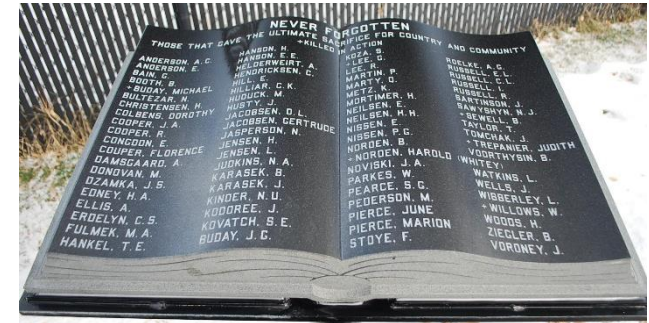 NEVER FORGOTTEN
THOSE THAT GAVE THE ULTIMATE SACRIFICE FOR COUNTRY AND COMMUNITY
+KILLED IN ACTION
ANDERSON, A.C.
ANDERSON, E.
BAIN, G.
BOOTH, D.
+BUDAY, MICHAEL
BULTEZAR, N.
CHRISTENSEN, H.
COLBENS, DOROTHY
COOPER, J.A.
COOPER, R.
CONGDON, E.
COUPER, FLORENCE
DAMSGAARD, A.
DONOVAN, M.
DZAMKA, J.S.
EDNEY, H.A.
ELLIS, A.
ERDELYN, C.S.
FULMEK, M.A.
HANKEL, T.E.
HANSON, H.
HANSON, E.E.
HELDERWEIRT, A.
HENDRICKSEN, C.
HILL, E.
HILLIAR, C.K.
HUDUCK, M.
HUSTY, J.
JACOBSEN, O.L.
JACOBSEN, GERTRUDE
JASPERSON, N.
JENSEN, H.
JENSEN, L.
JUDKINS, N.A.
KARASEK, B.
KARASEK, J.
KINDER, N.U.
KODOREE, J.
KOVATCH, S.E.
BUDAY, J.G.
KOZA, S.
+LEE, G.
LEE, R.
MARTIN, P.
MARTY, O.
METZ, K.
MORTIMER, H.
NEILSEN, E.
NEILSEN, H.H.
NISSEN, E.
NISSEN, P.G.
NORDEN, B.
+NORDEN, HAROLD (WHITEY)
NOVISKI, J.A.
PARKES, W.
PEARCE, S.G.
PEDERSON, M.
PIERCE, JUNE
PIERCE, MARION
STOYE, F.
ROELKE, A.G.
RUSSELL, E.L.
RUSSELL, C.L.
RUSSELL, I.
RUSSELL, R.
SARTINSON, J.
SAWYSHYN, N.J.
+SEWELL, B.
TAYLOR, T.
TOMCHAK, J.
+TREPANIER, JUDITH
VOORTHYSIN, B.
WATKINS, L.
WELLS, J.
WIBBERLEY, L.
+WILLOWS, W.
WOODS, H.
ZIEGLER, B.
VORONEY, J.